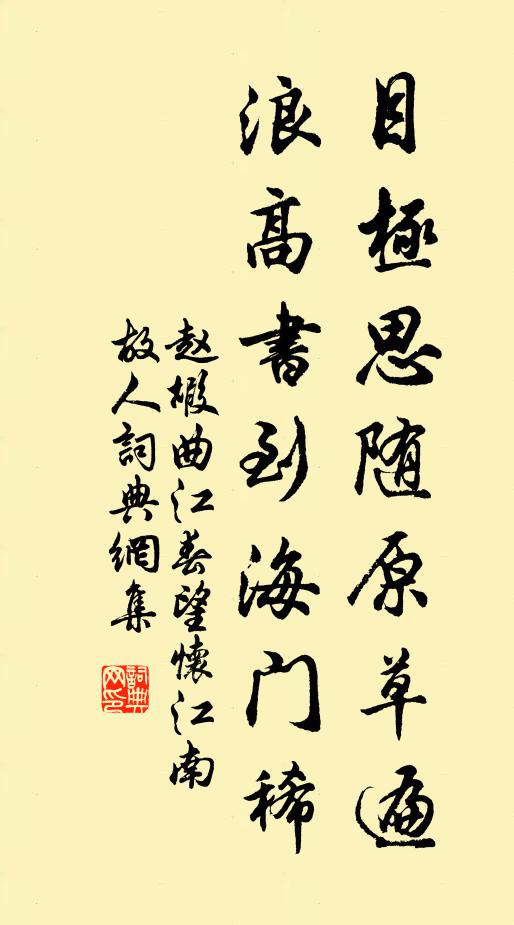 目極思随原草遍
浪高書到海門稀
赵嘏曲江春望懷江南
故人詞典網集
詞典网印